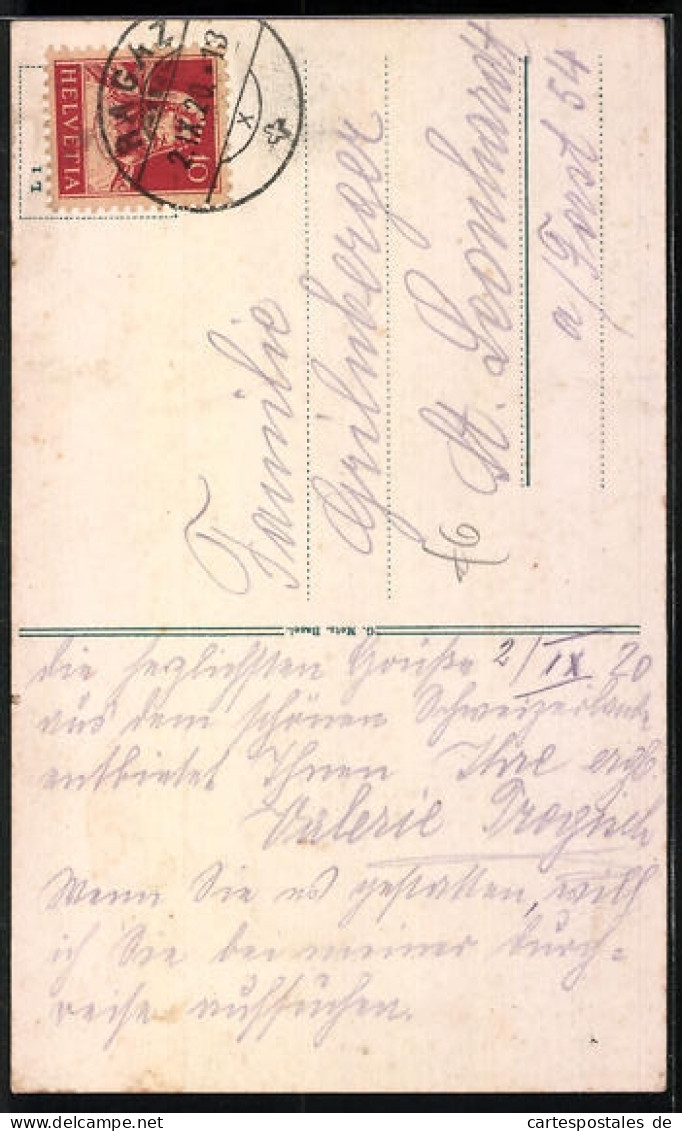 HELVETIA
10
RAGAZ
2.IX.20.-13
X
L 1
Familie
Grünberger
St. Leonhardt
a/Forst 54
G. Metz, Basel.
2/IX 20
die herzlichsten Grüße
aus dem schönen Schweizerland
entbietet Ihnen Ihre erg.
Valerie
Wenn Sie es gestatten, will
ich Sie bei meiner Durch-
reise aufsuchen.
cartespostales.de